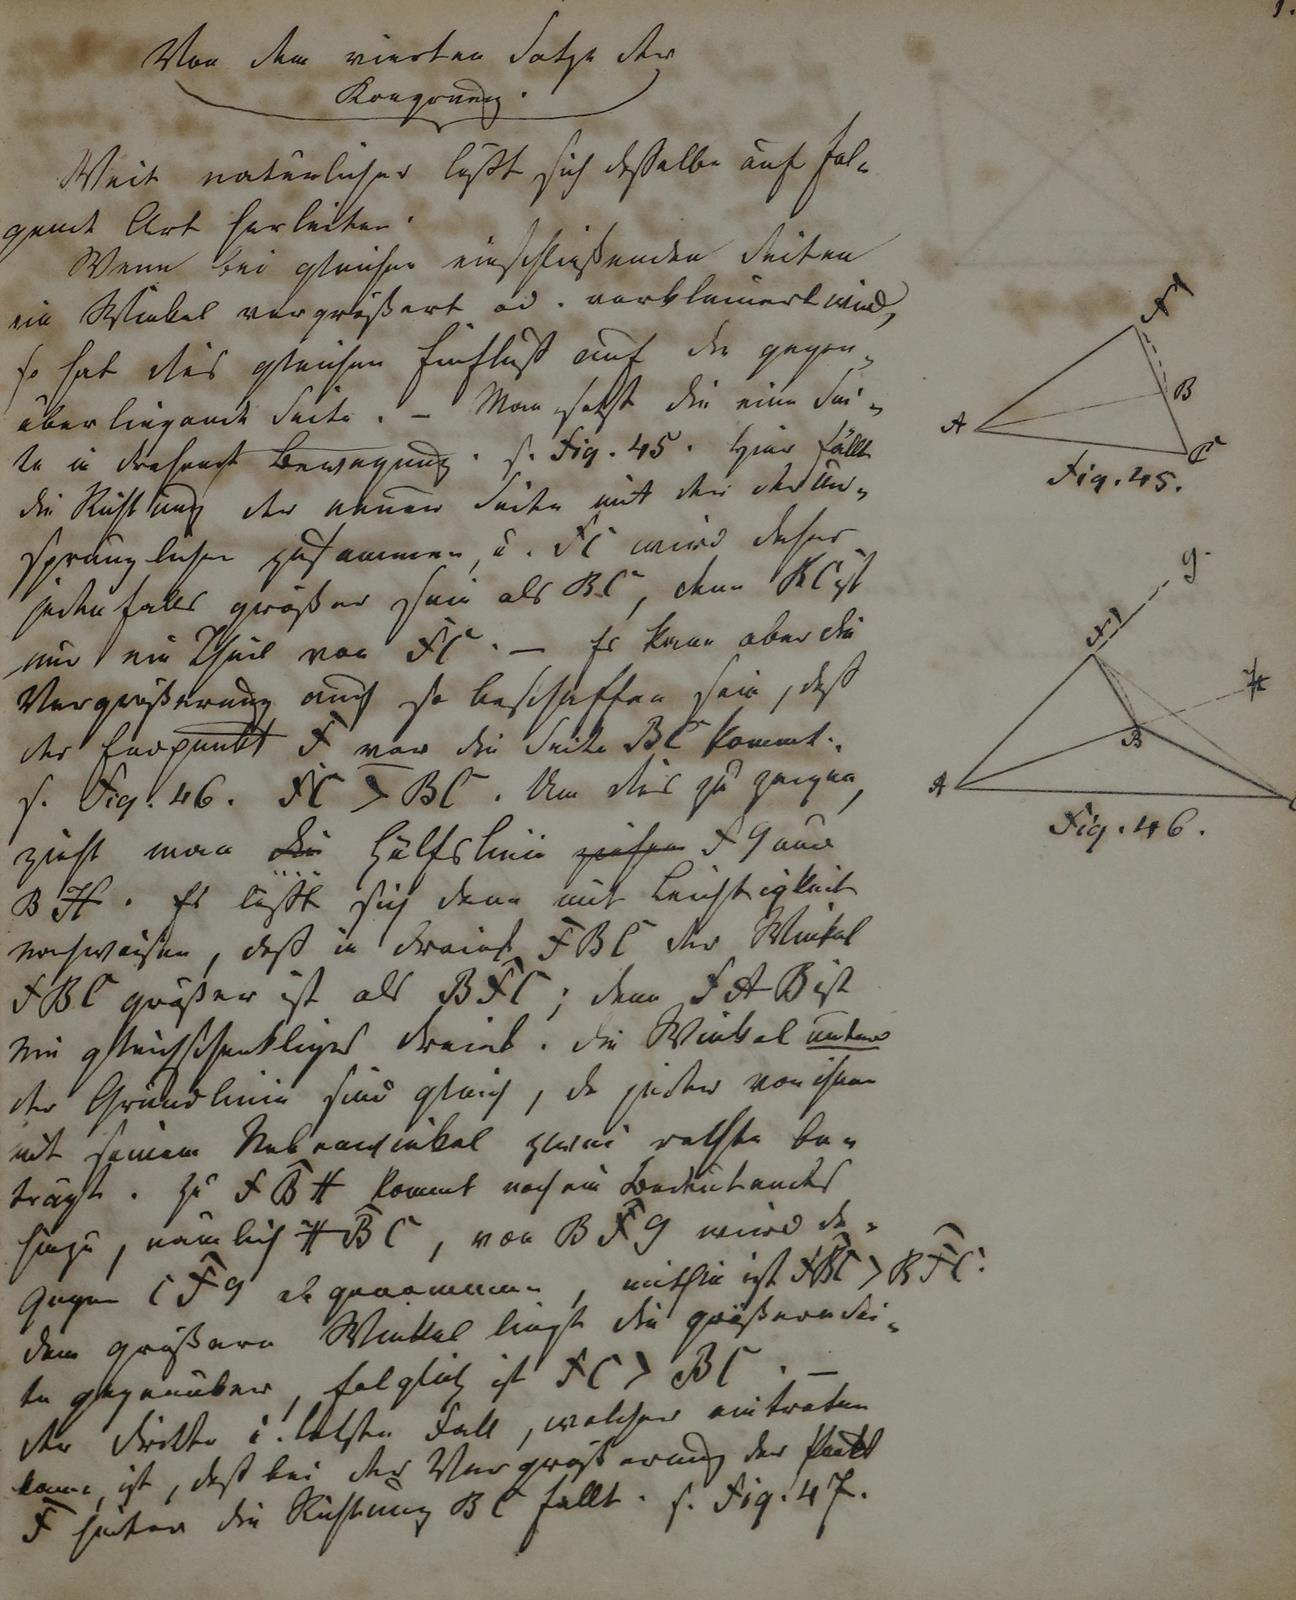 1.
Von dem vierten Satze der
Kongruenz.
Weit natürlicher läßt sich derselbe auf fol-
gende Art herleiten.
Wenn bei gleichen einschließenden Seiten
ein Winkel vergrößert od. verkleinert wird,
so hat dies gleichen Einfluß auf die gegen-
überliegende Seite. – Man setzt die eine Sei-
te in drehende Bewegung. s. Fig. 45. Hier fällt
die Richtung der neuen Seite mit der der ur-
sprünglichen zusammen, u. FC wird daher
jedenfalls größer sein als BC, denn BC ist
nur ein Theil von FC. – Es kann aber die
Vergrößerung auch so beschaffen sein, daß
der Endpunkt F vor die Seite BC kommt.
s. Fig. 46. FC > BC. Um dies zu zeigen,
zieht man die Hülfslinie ziehen FG und
BH. Es läßt sich dann mit Leichtigkeit
nachweisen, daß in Dreieck FBC der Winkel
FBC größer ist als BFC; denn FAB ist
ein gleichschenkliges Dreieck. Die Winkel unter
der Grundlinie sind gleich, da jeder von ihnen
mit seinem Nebenwinkel zwei rechte be-
trägt. Zu FBH kommt noch ein Bedeutendes
hinzu, nämlich HBC, von BFG wird da-
gegen CFG abgenommen, mithin ist FBC > BFC.
Dem größern Winkel liegt die größere Sei-
te gegenüber, folglich ist FC > BC. –
Der dritte u. letzte Fall, welcher eintreten
kann, ist, daß bei der Vergrößerung der Punkt
F hinter die Richtung BC fällt. s. Fig. 47.
F
B
A
C
Fig. 45.
G
F
H
B
A
C
Fig. 46.